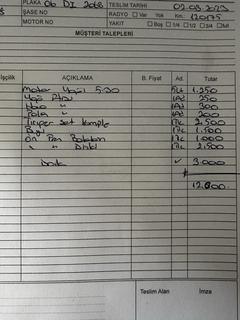 PLAKA 06 DI 2068 TESLİM TARİHİ 02.03.2023
ŞASE NO RADYO Var Yok Km.: 120175
MOTOR NO YAKIT Boş 1/4 1/2 3/4 Full
MÜŞTERİ TALEPLERİ
İşçilik AÇIKLAMA B. Fiyat Ad. Tutar
Motor Yağı 5-30 5Lt 1.250
Yağ 1Ad 250
Hava " 1Ad 300
Polen " 1Ad 200
Triger Set Komple 1Tk 2.500
1Tk 1.500
Ön Fren Balatası 1Tk 1.000
" " Diski 1Tk 2.500
✓ 3.000
Teslim Alan İmza